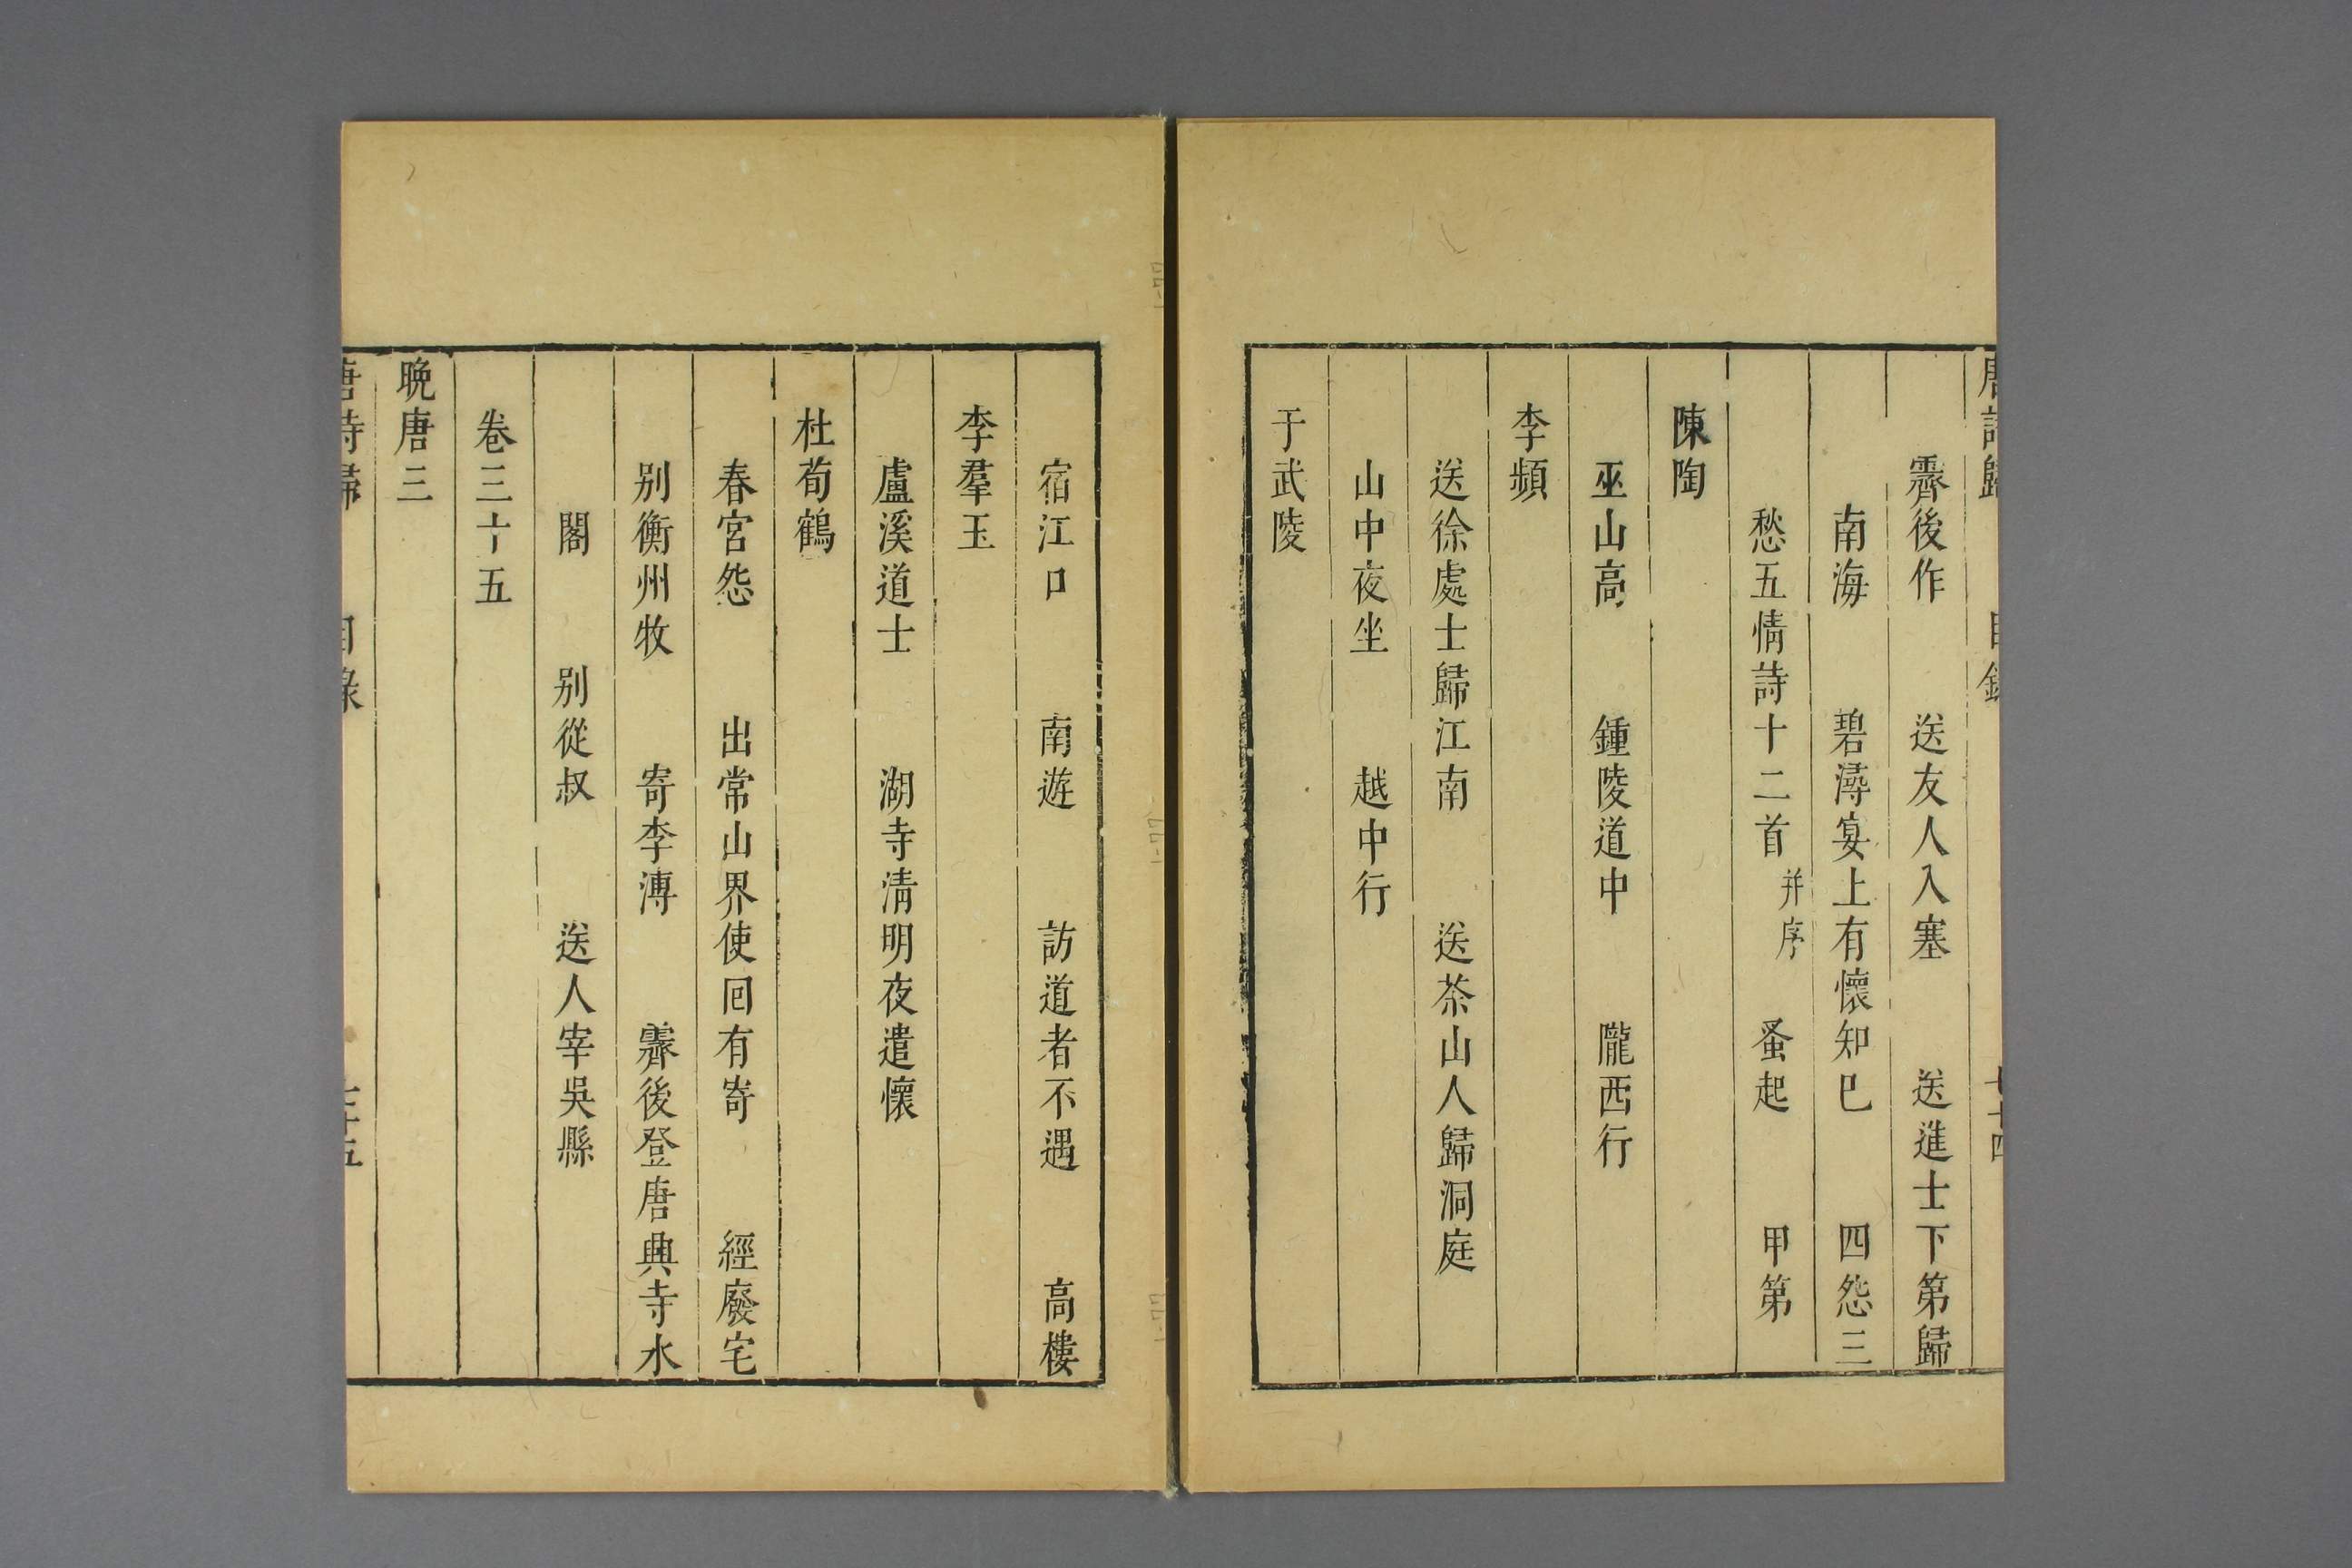 唐詩歸 目錄 七十四
霽後作 送友人入塞 送進士下第歸
南海 碧潯宴上有懷知巳 四怨三
愁五情詩十二首 并序 蚤起 甲第
陳陶
巫山高 鍾陵道中 隴西行
李頻
送徐處士歸江南 送茶山人歸洞庭
山中夜坐 越中行
于武陵
宿江口 南遊 訪道者不遇 高樓
李羣玉
盧溪道士 湖寺清明夜遣懷
杜荀鶴
春宮怨 出常山界使回有寄 經廢宅
别衡州牧 寄李溥 霽後登唐興寺水
閣 别從叔 送人宰吳縣
卷三十五
晚唐三
唐詩歸 目錄 七十五